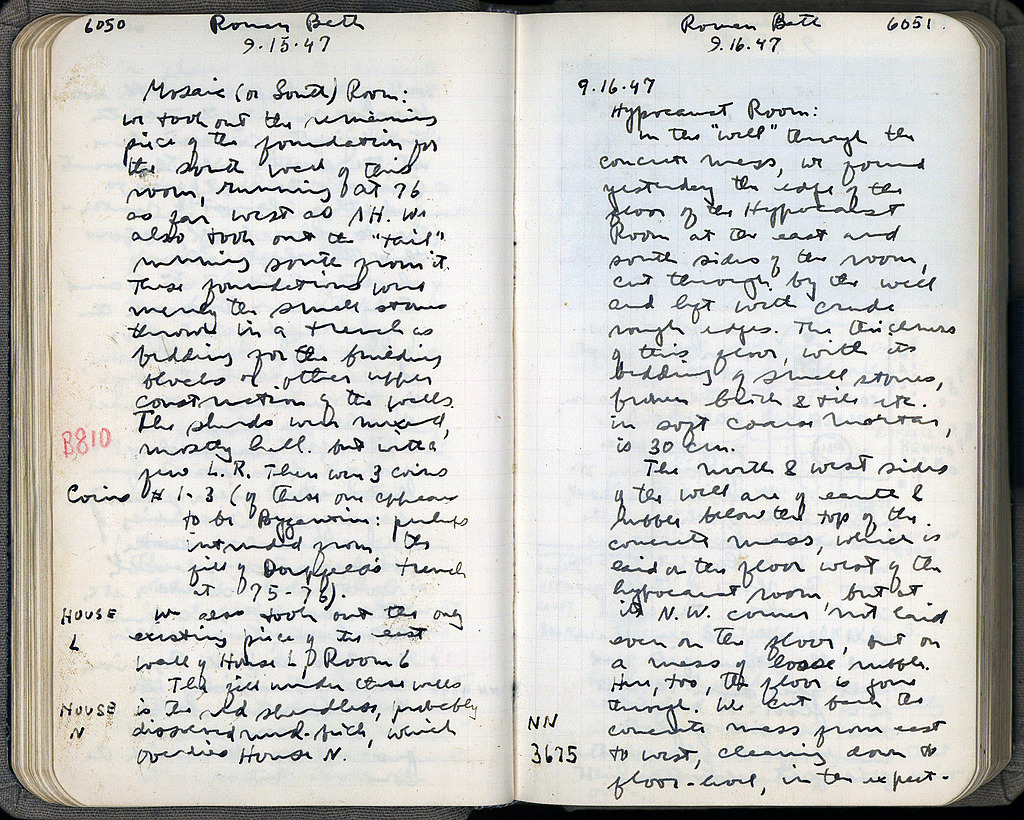 6050 Roman Bath
9.15.47
Mosaic (or South) Room:
We took out the remaining
piece of the foundation for
the south wall of this
room, running at 76
as far west as ΛH. We
also took out the "tail"
running south from it.
These foundations were
merely the small stones
thrown in a trench as
bedding for the building
blocks or other upper
construction of the walls.
The sherds were mixed,
B810
mostly hell. but with a
few L.R. There were 3 coins
Coins #1-3 (of these one appears
to be Byzantine: perhaps
intruded from the
fill of Doerpfeld's trench
at 75-76).
HOUSE L
We also took out the only
existing piece of the east
wall of House L, Room 6
The fill under these walls
HOUSE N
is the red sherdless, probably
dissolved mud-brick, which
overlies House N.
Roman Bath 6051.
9.16.47
9.16.47
Hypocaust Room:
In the "well" through the
concrete mass, we found
yesterday the edge of the
floor of the Hypocaust
Room at the east and
south sides of the room,
cut through by the well
and left with crude
rough edges. The thickness
of this floor, with its
bedding of small stones,
broken brick & tile etc.
in soft coarse mortar,
is 30 cm.
The north & west sides
of the well are of earth &
rubble below the top of the
concrete mass, which is
laid on the floor west of the
hypocaust room but at
its N.W. corner not laid
even on the floor, but on
a mass of loose rubble.
Here, too, the floor is gone
through. We cut back the
NN
concrete mass from east
3675
to west, cleaning down to
floor-level, in the expect-